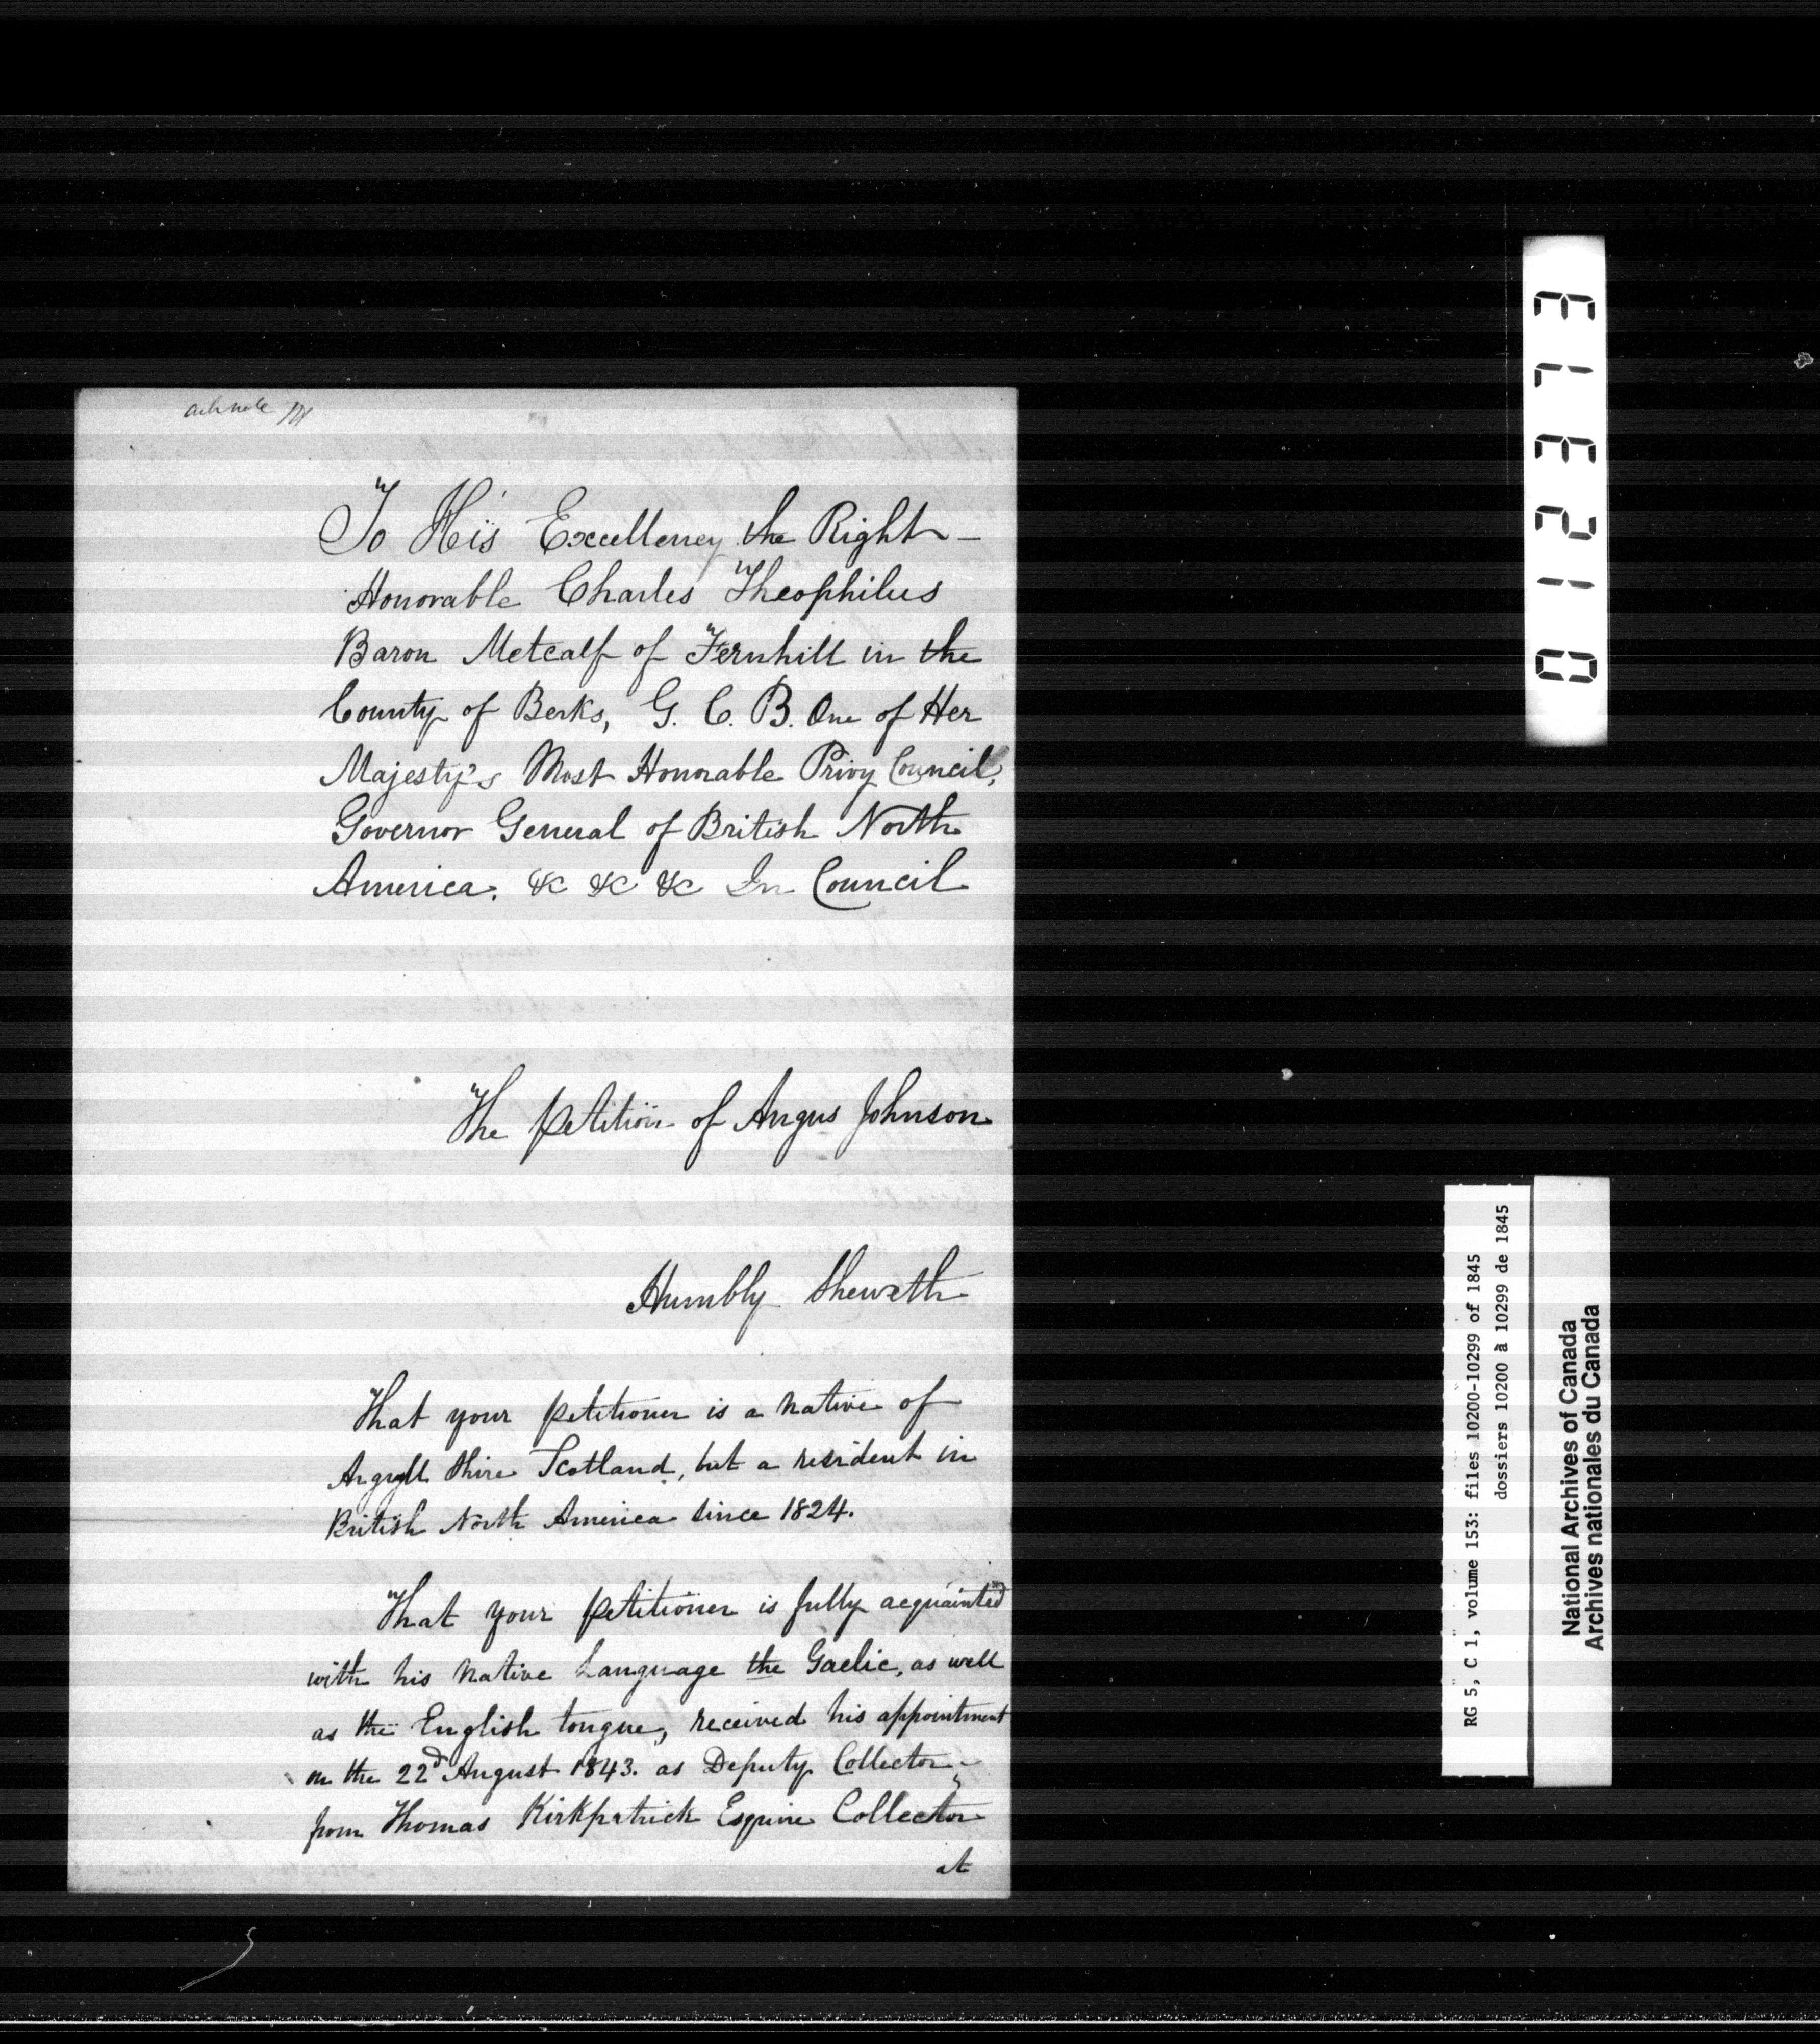 To His Excellency the Right
Honorable Charles Theophilus
Baron Metcalf of Fernhill in the
County of Berks, G. C. B. One of Her
Majesty's Most Honorable Privy Council,
Governor General of British North
America. &c &c &c In Council
The petition of Angus Johnson
Humbly Sheweth
That your petitioner is a native of
Argyll Shire Scotland, but a resident in
British North America since 1824.
That your petitioner is fully acquainted
with his native Language the Gaelic, as well
as the English tongue, received his appointment
on the 22d August 1843. as Deputy Collector
from Thomas Kirkpatrick Esquire Collector
at
012373
RG 5, C 1, volume 153: files 10200-10299 of 1845
dossiers 10200 à 10299 de 1845
National Archives of Canada
Archives nationales du Canada